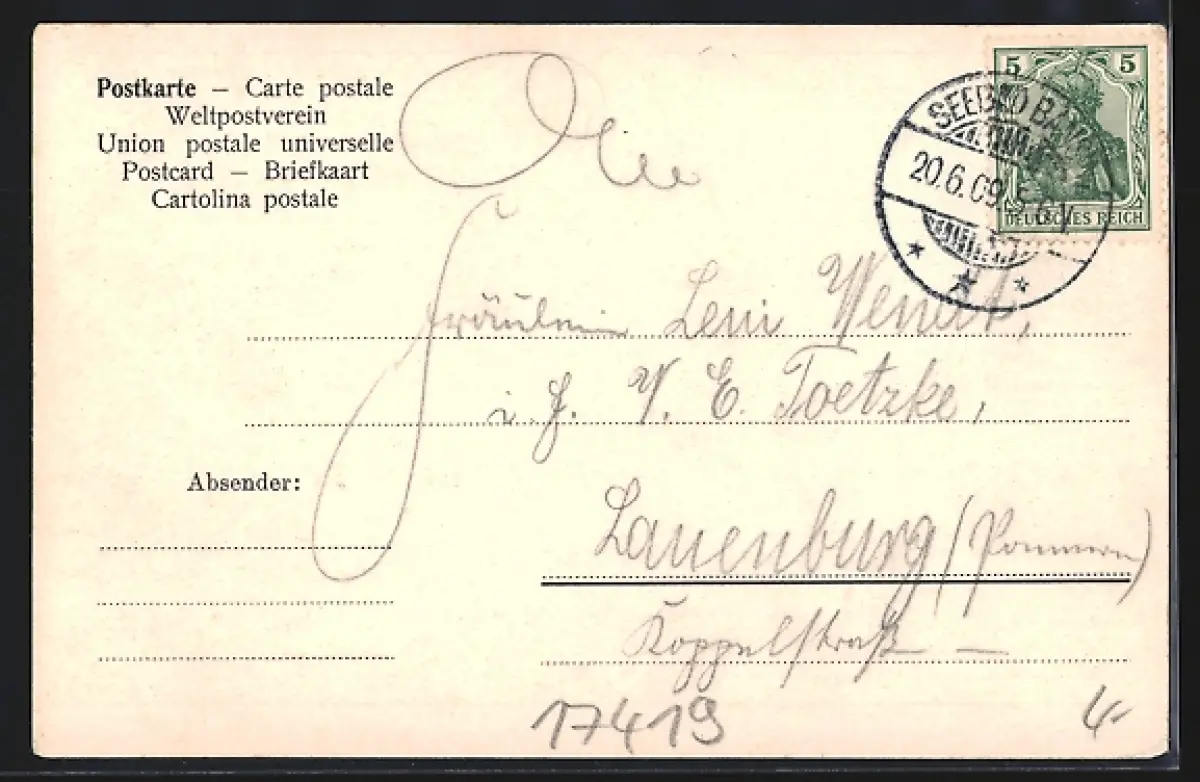 Postkarte – Carte postale
Weltpostverein
Union postale universelle
Postcard – Briefkaart
Cartolina postale
5 5
SEEBAD
20.6.09
DEUTSCHES REICH
An
Fräulein Leni Wendt,
i. F. V. E. Toetzke,
Absender:
Lauenburg (Pommern)
Koppelstraße
17419
4-